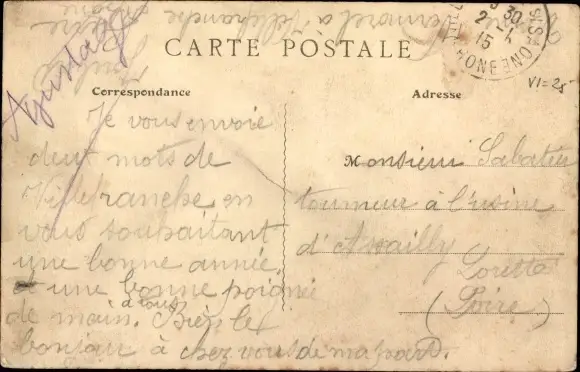 CARTE POSTALE
Correspondance
Adresse
VILLEFRANCHE
30
2-1
15
RHONE
V1=25
Je vous envoie
deux mots de
Villefranche en
vous souhaitant
une bonne année.
une bonne poignée
à tous
de main. Bien le
bonjour à chez vous de ma part.
Monsieur Sabatier
tourneur à l'usine
d'Assailly
Lorette
(Loire)